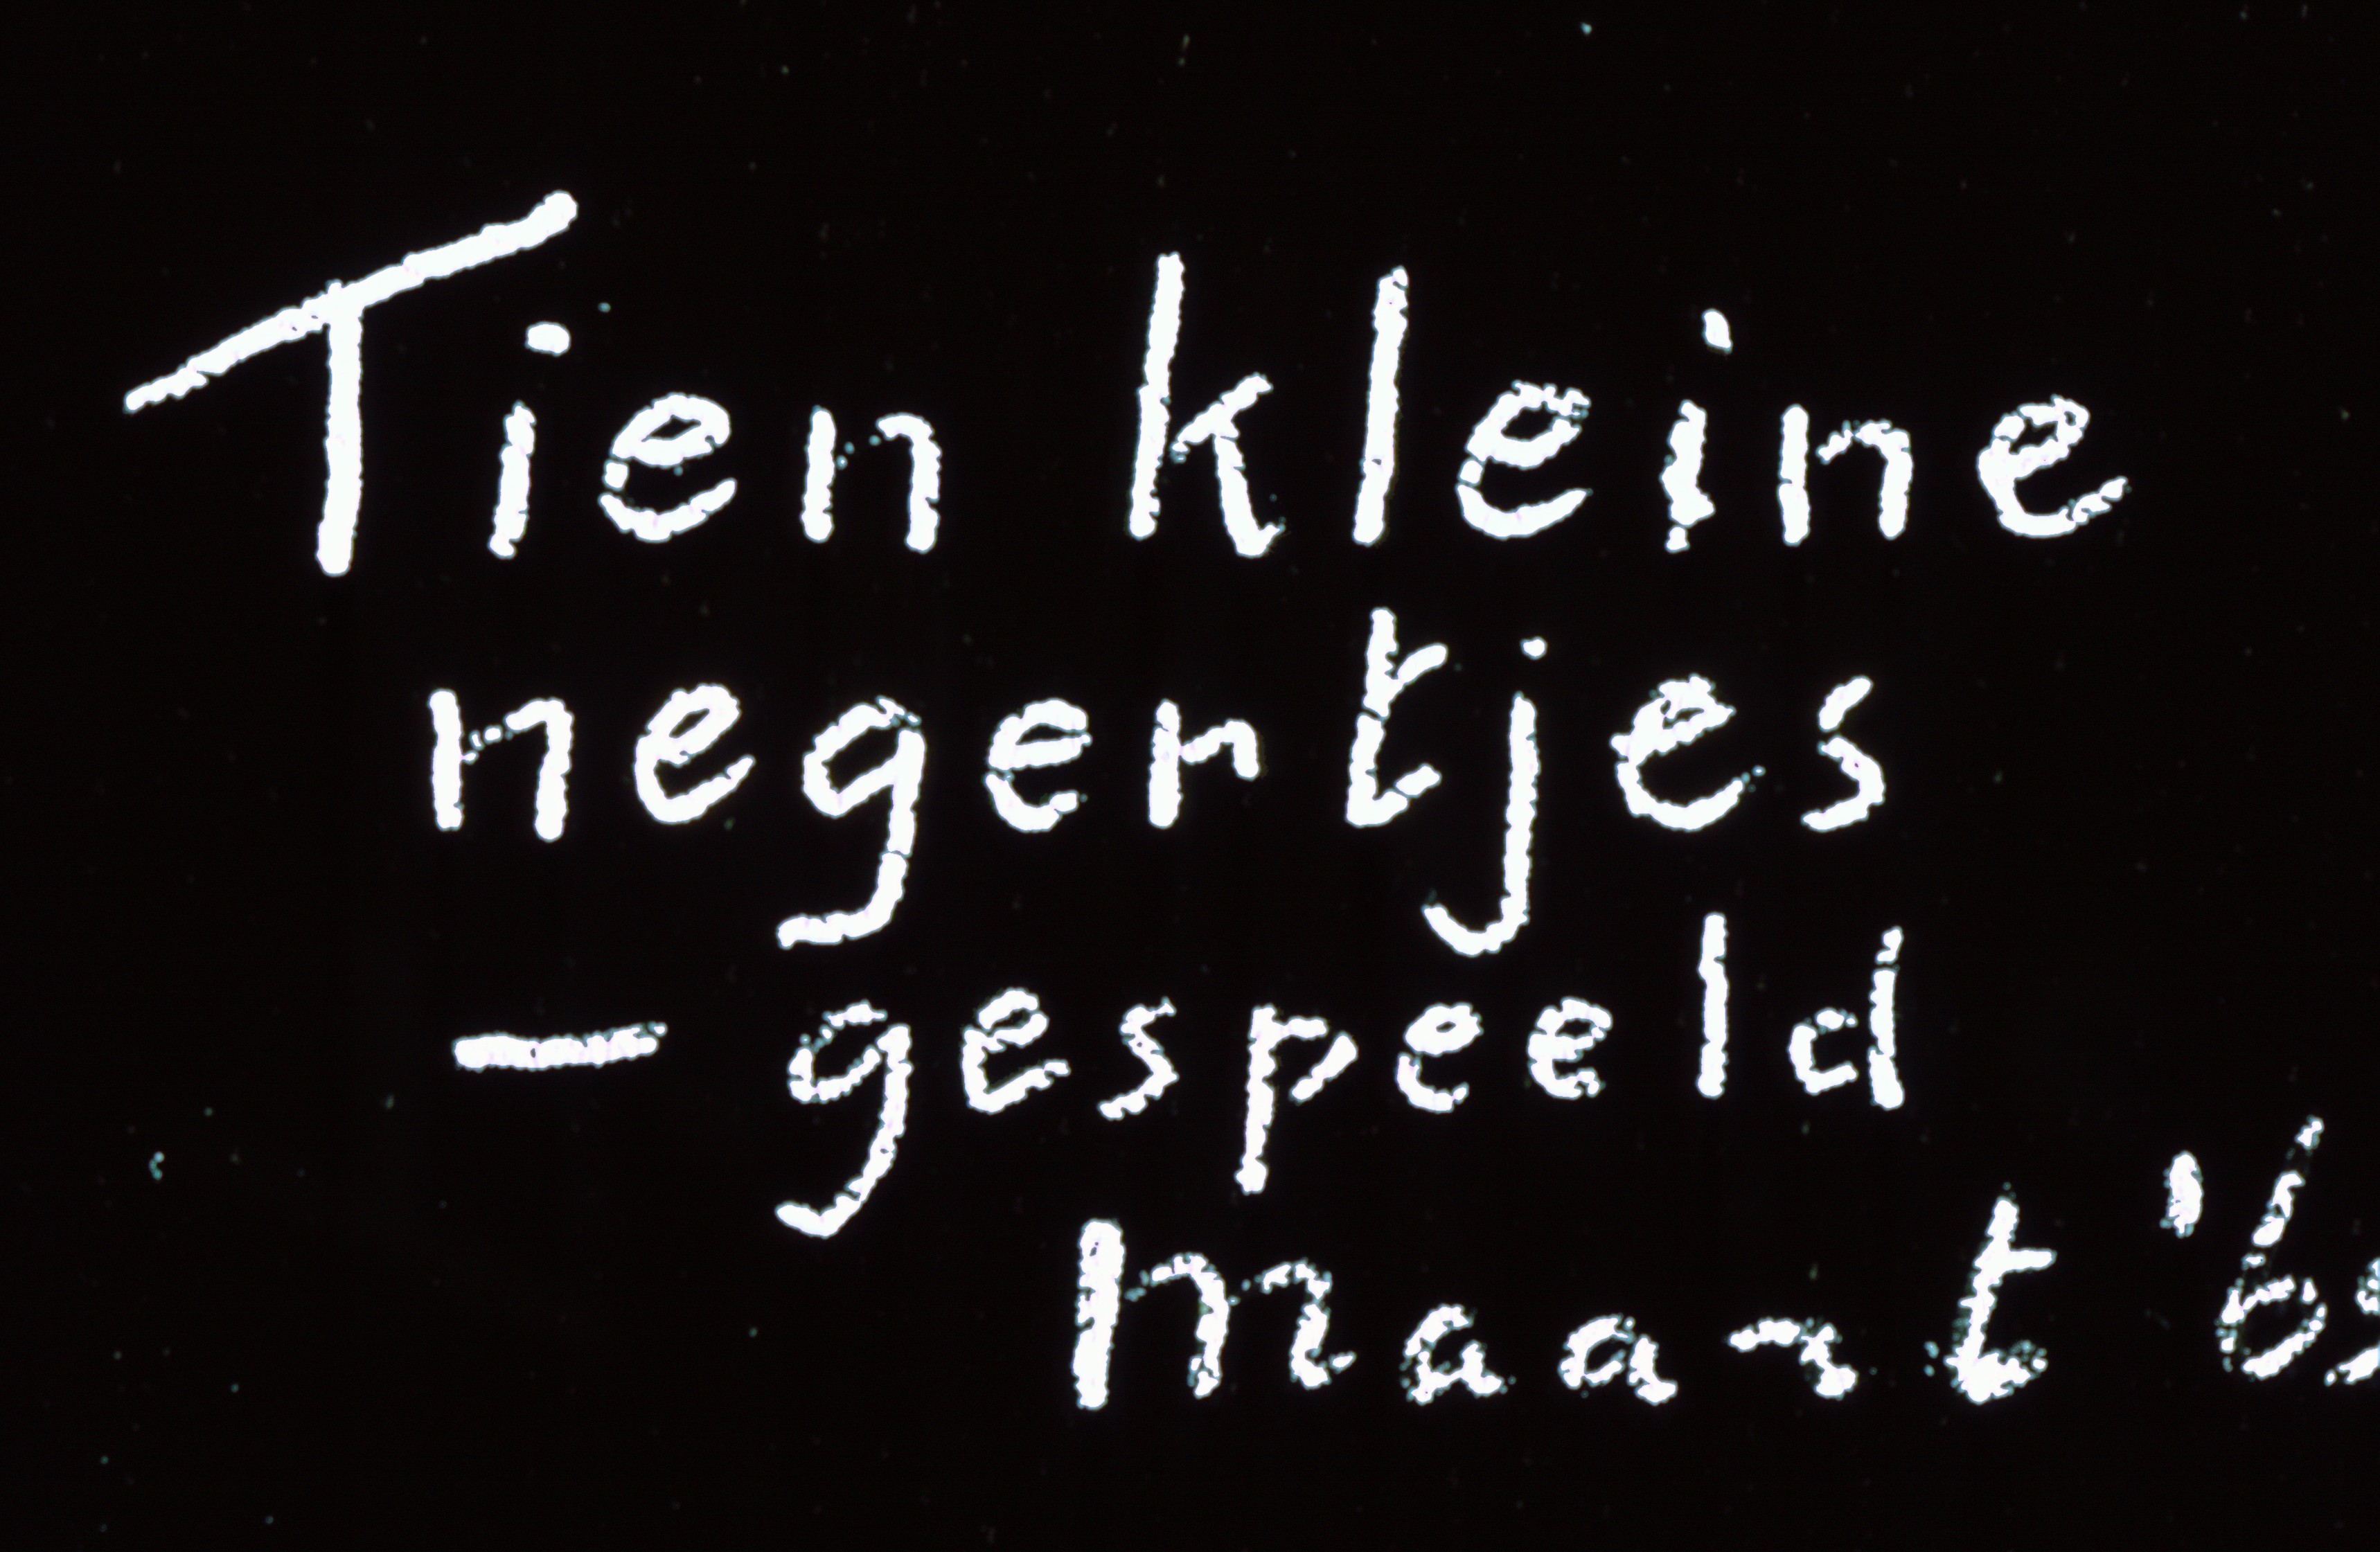 Tien kleine
negertjes
- gespeeld
Maart '6